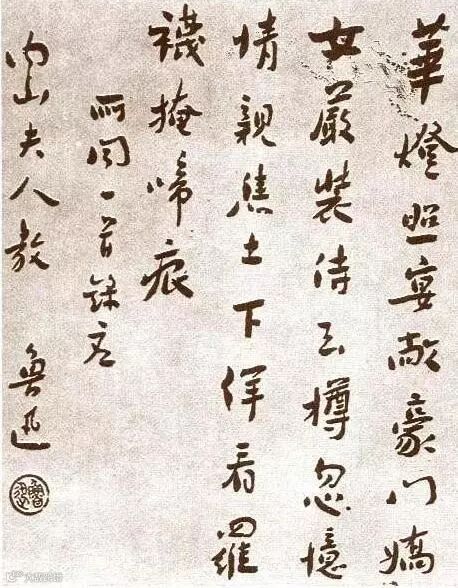 華燈照宴敞豪門嬌
女嚴裝侍玉樽忽憶
情親焦土下佯看羅
襪掩啼痕
所闻一首録
内山夫人教 魯迅
魯迅